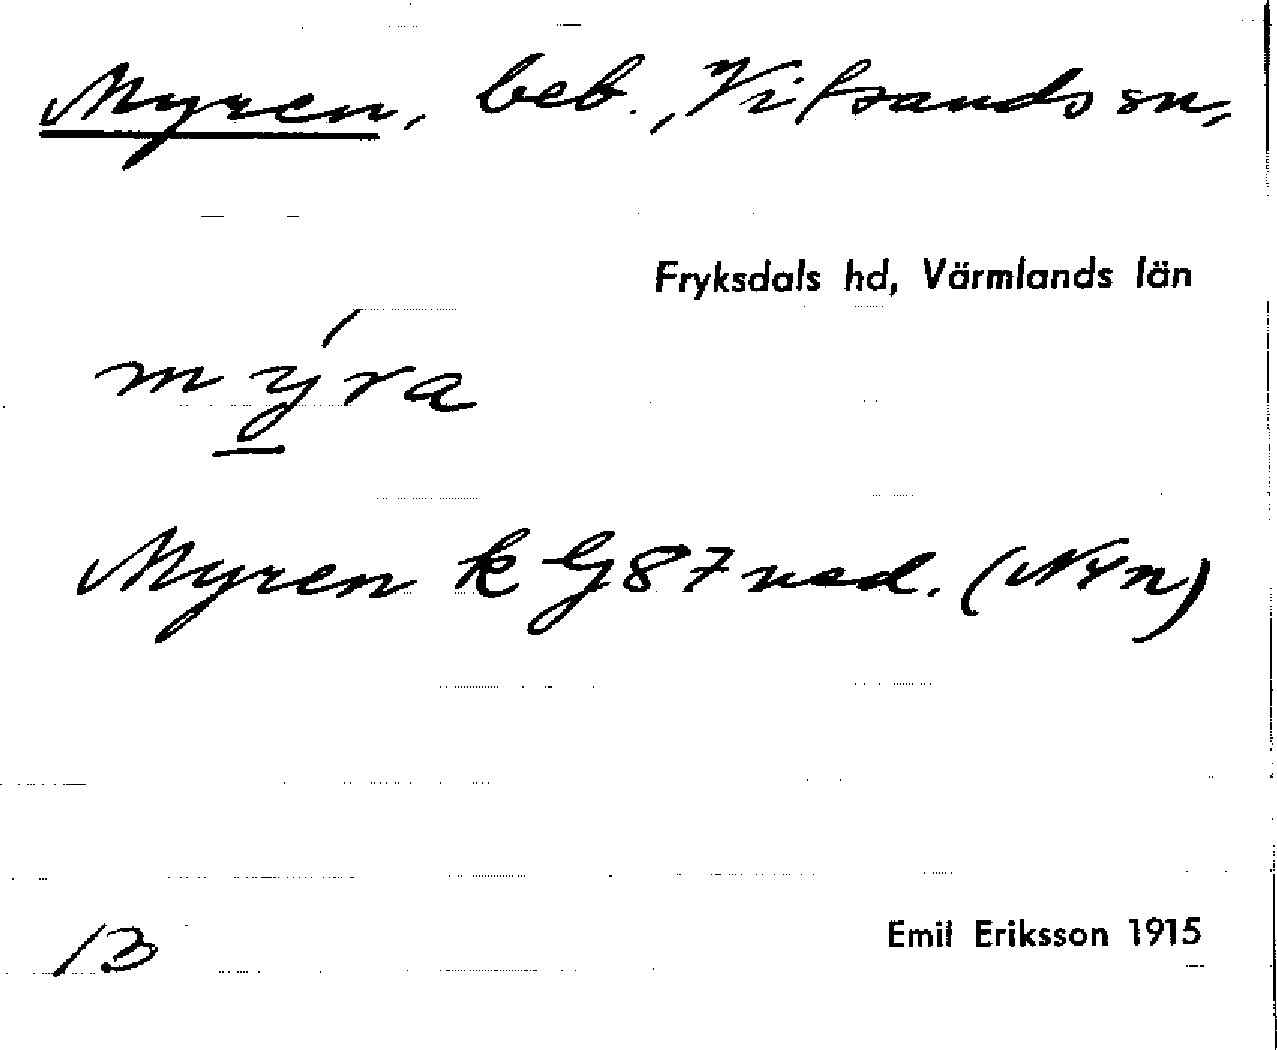 Myren, beb., Vitsands sn,
Fryksdals hd, Värmlands län
mýra
Myren k G 87 ned. (NYn)
13
Emil Eriksson 1915